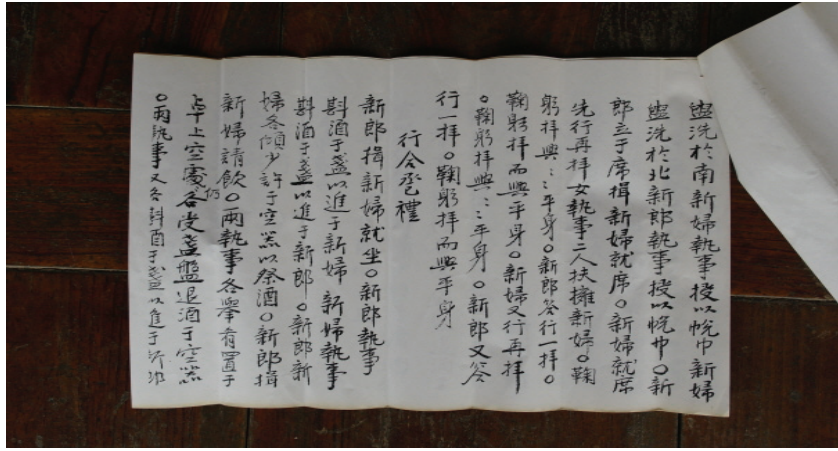 盥洗於南新婦執事授以帨巾新婦
盥洗於北新郎執事授以帨巾〇新
郎立于席揖新婦就席〇新婦就席
先行再拜女執事二人扶擁新婦〇鞠
躬拜興〻平身〇新郎答行一拜〇
鞠躬拜而興平身〇新婦又行再拜
〇鞠躬拜興〻平身〇新郎又答
行一拜〇鞠躬拜而興平身
行合巹禮
新郎揖新婦就坐〇新郎執事
斟酒于盞以進于新婦 新婦執事
斟酒于盞以進于新郎〇新郎新
婦各傾少許于空器以祭酒〇新郎揖
新婦請飲〇兩執事各舉肴置于
卓上空處仍各受盞盤退酒于空器
〇兩執事又各斟酒于盞以進于